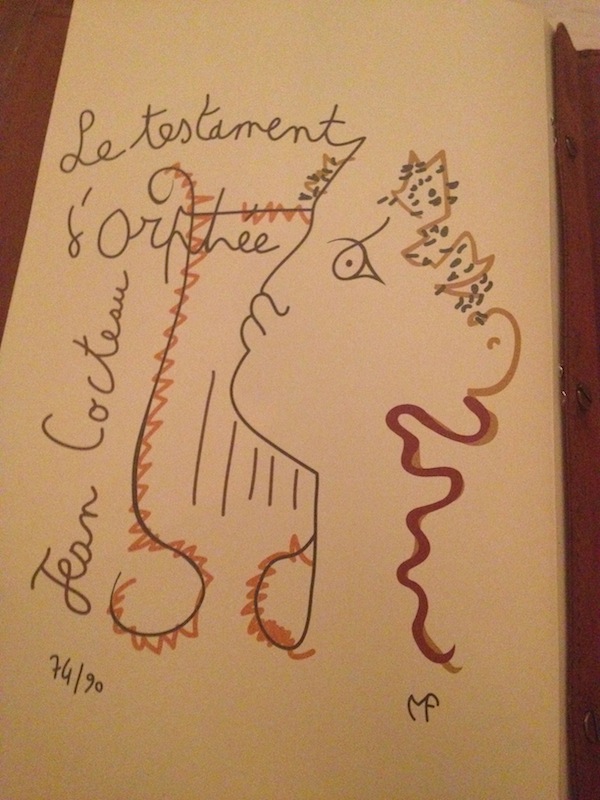 Le testament
d'Orphée
Jean Cocteau
74/90
MF